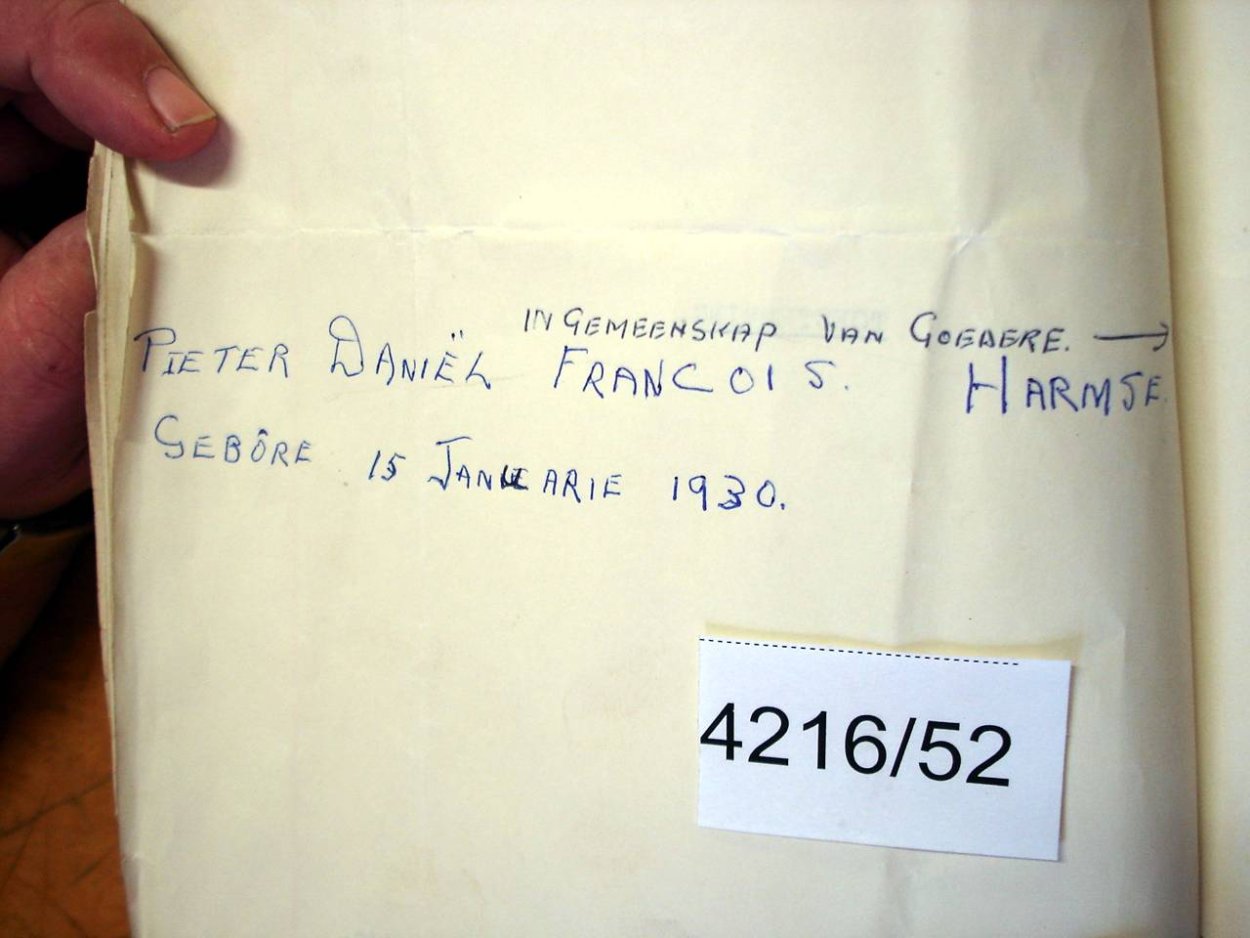 IN GEMEENSKAP VAN GOEDERE. →
PIETER DANIËL FRANCOIS. HARMSE.
GEBÔRE 15 JANUARIE 1930.
4216/52